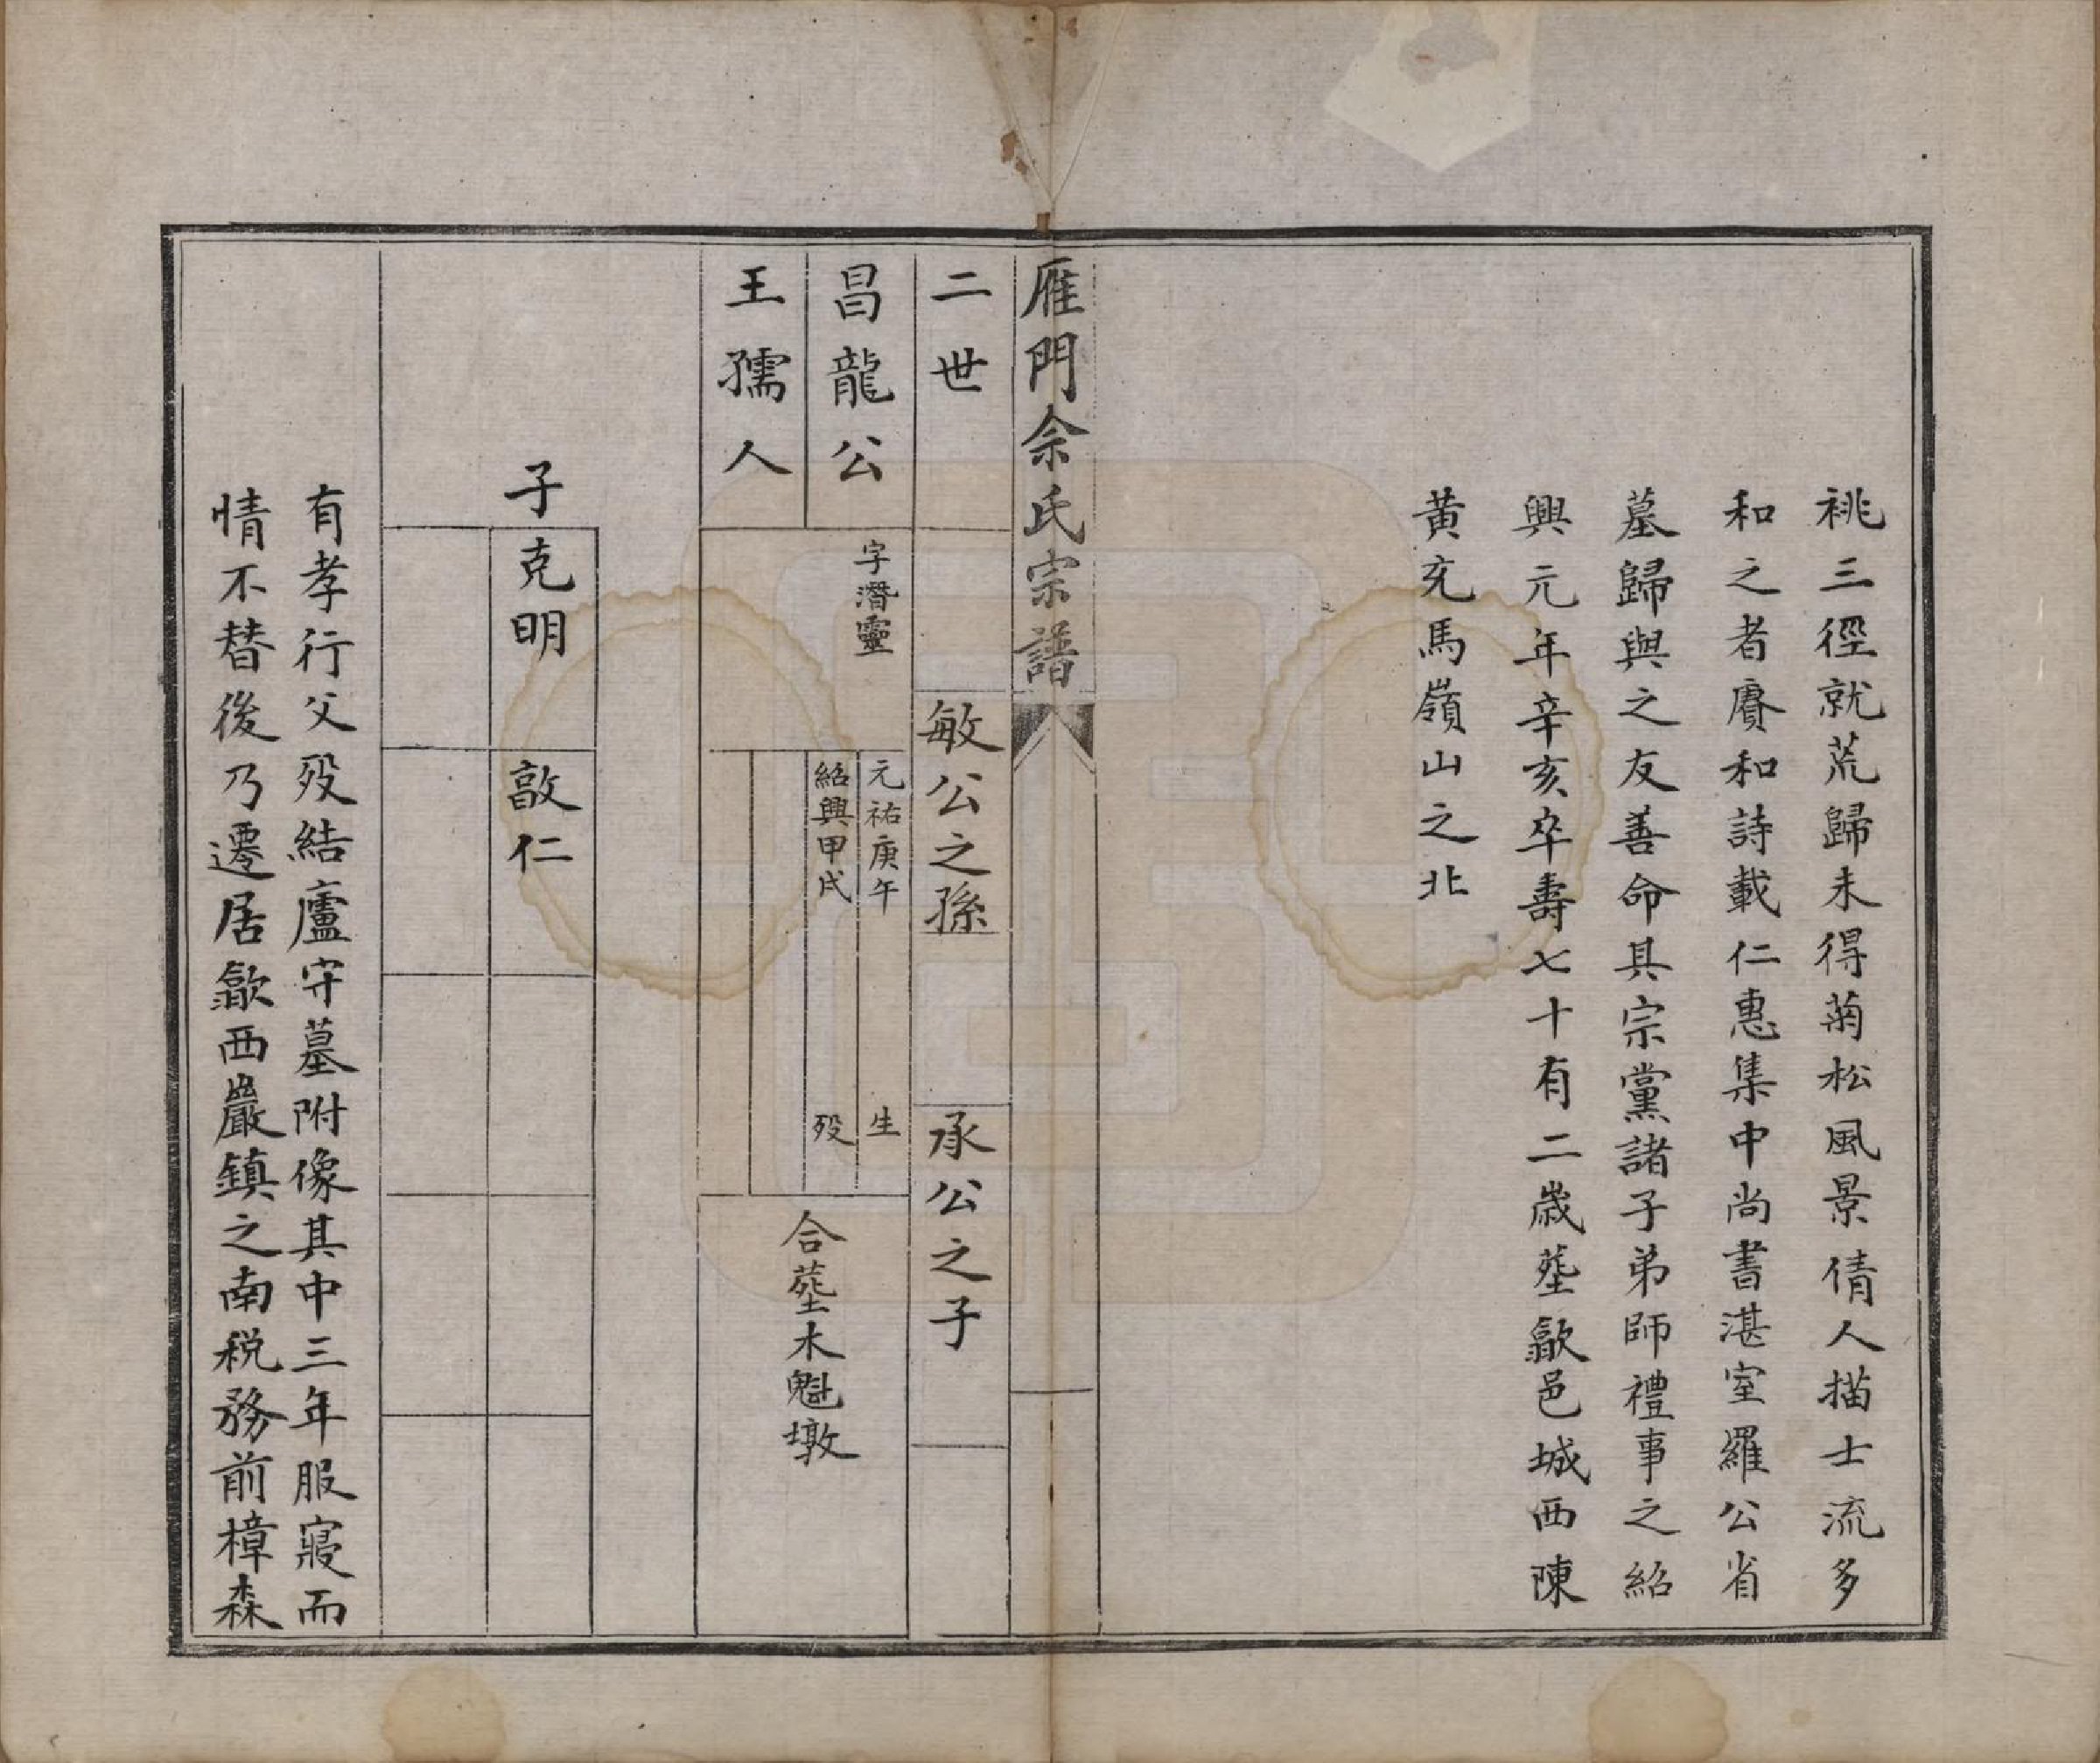 祧三徑就荒歸未得菊松風景倩人描士流多
和之者賡和詩載仁惠集中尚書湛室羅公省
墓歸與之友善命具宗黨諸子弟師禮事之紹
興元年辛亥卒壽七十有二歲塟歙邑城西陳
黃充馬嶺山之北
雁門佘氏宗譜
二世 敏公之孫 承公之子
昌龍公
王孺人
字潛靈
元祐庚午 生
紹興甲戌 殁
合塟木魁墩
子 克明 敦仁
有孝行父殁結廬守墓附像其中三年服寢而
情不替後乃遷居歙西巖鎮之南税務前樟森